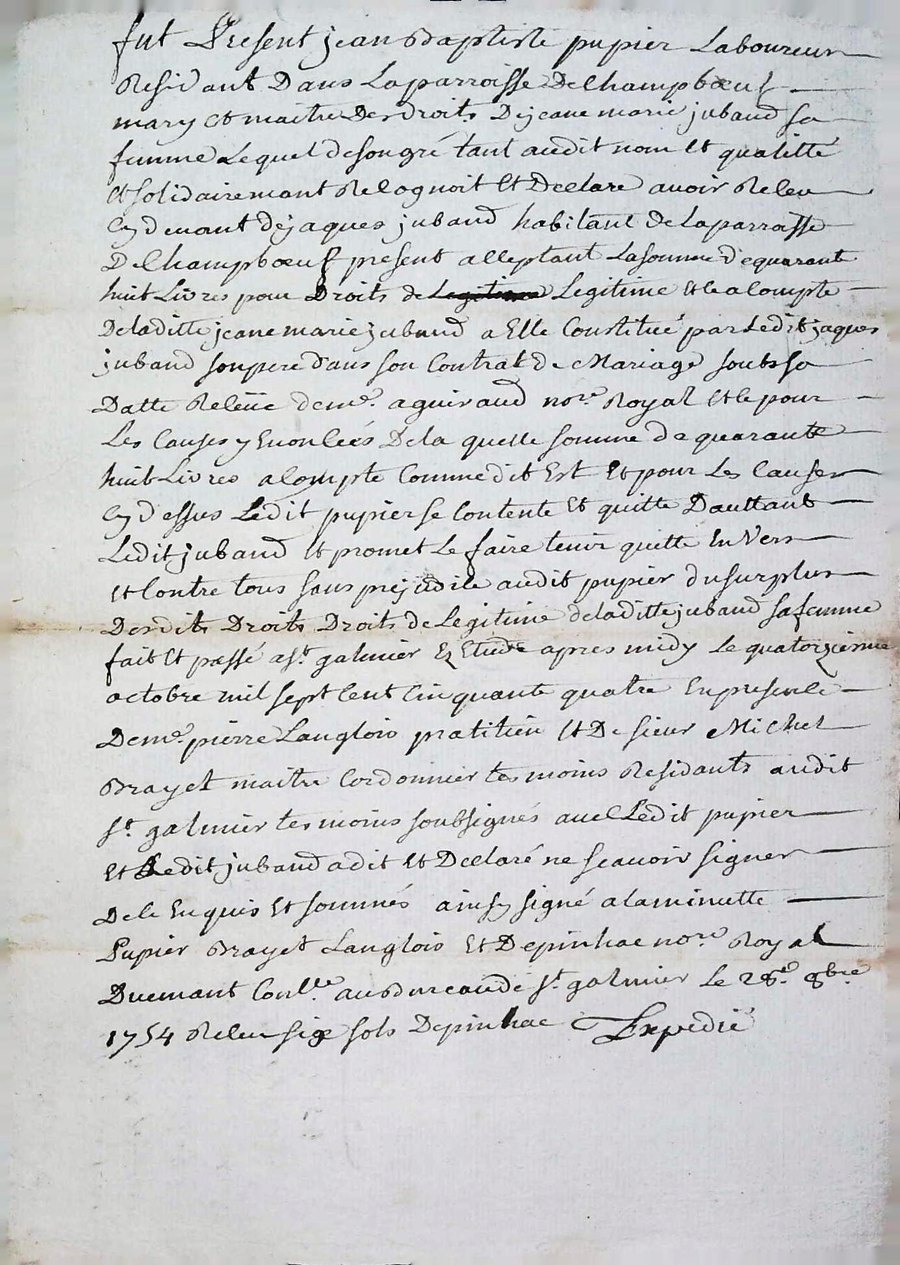 fut Present jean Baptiste pupier Laboureur
Residant Dans Laparroisse De Champbœuf
mary et maitre Des droits De jeane marie juband sa
femme Lequel de son gré tant audit nom et qualitté
et solidairemant Recognoit et Declare avoir Receu
cy devant de jaques juband habitant de La parroisse
De Champbœuf present acceptant La somme de quarante
huit Livres pour Droits de Legitime et ce a Compte
De laditte jeane marie juband a Elle Constitué par Ledit jaques
juband son pere dans son Contrat de Mariage soubs sa
Datte Receüe de me. aguiraud nore. Royal et ce pour
Les Causes y Enoncéés De la quelle somme de quarante
huit Livres a Compte Comme dit Est et pour Les Causes
cy dessus Ledit pupier se Contente et quitte Dauttant
Ledit juband et promet Le faire tenir quitte En Vers
et Contre tous sans prejudice audit pupier du surplus
Desdits Droits Droits de Legitime de laditte juband sa femme
fait et passé a st. galmier Ez Etude apres midy Le quatorzieme
octobre mil sept Cent Cinquante quatre En presence
De me. pierre Langlois pratitien et De sieur Michel
Brayet maitre Cordonnier tesmoins Residants audit
st. galmier tesmoins soubsignés avec Ledit pupier
et Ledit juband a dit et Declaré ne scavoir signer
De ce Enquis et sommés ainsy signé a la minutte
Pupier Brayet Langlois et Depinhac nore. Royal
Duemant Conllé. au Bureau de st. galmier Le 28e. 8bre
1754 Receu six sols Depinhac Expedié